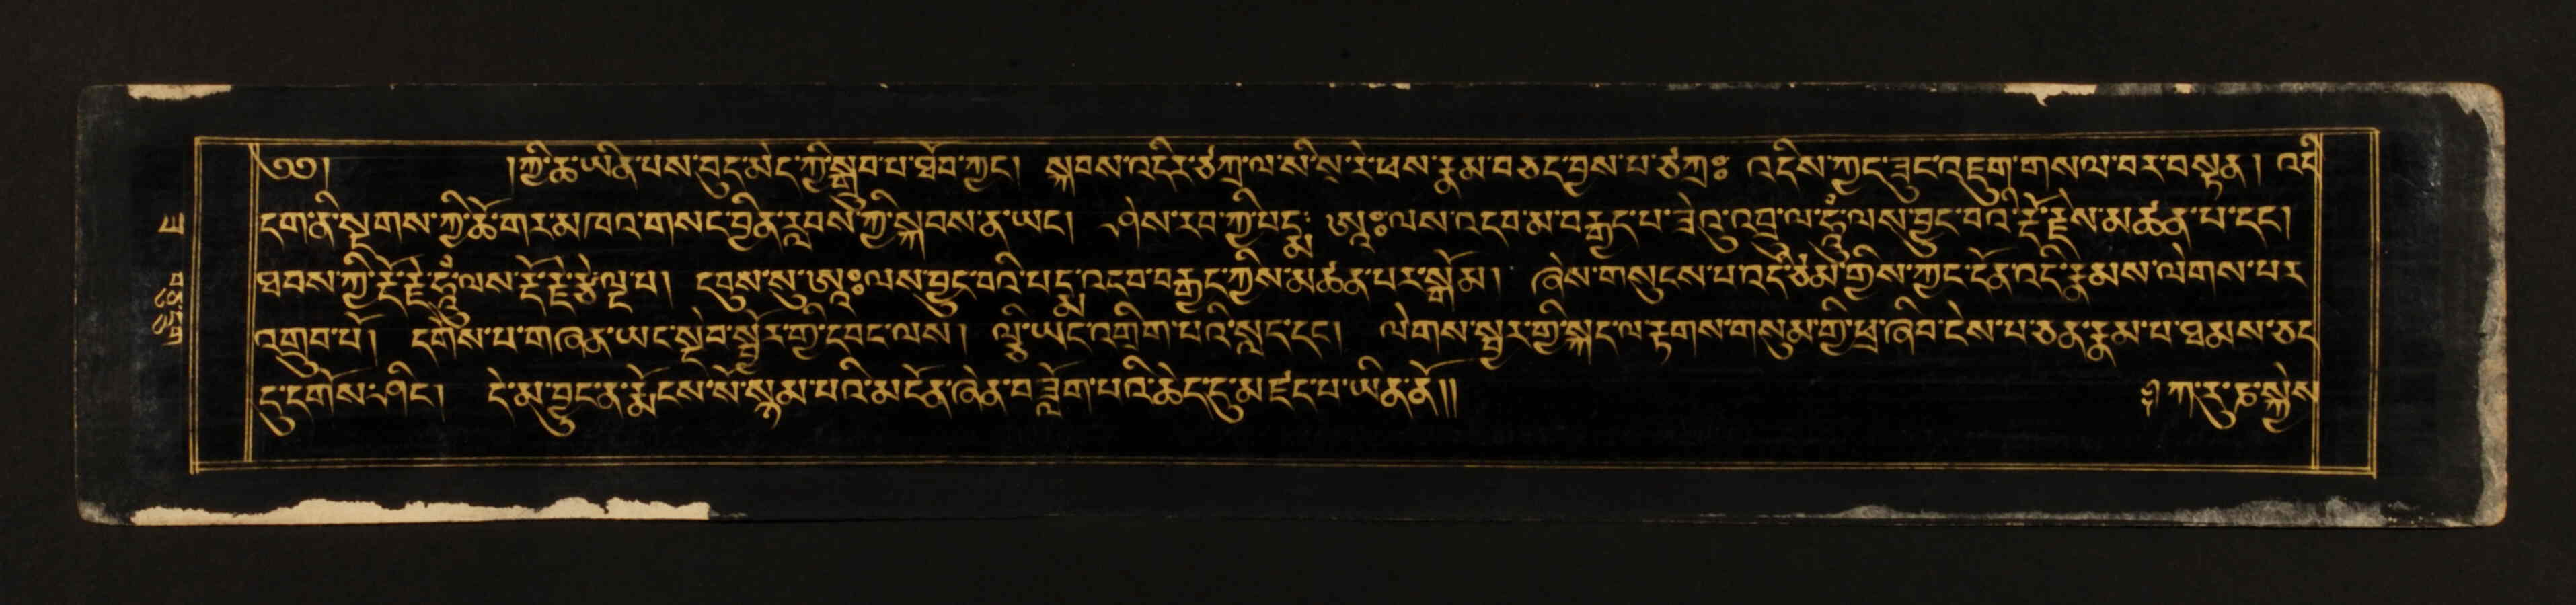 ༄༅། །ཀྱི་ཆ་ཡིན་པས་བུད་མེད་ཀྱི་སྒྲུབ་པ་ཐོབ་ཀྱང། སྐབས་འདིར་ཙཀྲ་ལ་སི་སྲ་རེ་ཕས་རྣམ་བཅད་བྱས་པ་ཙཀྲཿ འདིས་ཀྱང་ཟུང་འཇུག་གསལ་བར་བསྟན། འདི
དག་ནི་སྔགས་ཀྱི་ཆོ་གར་མཁའ་གསང་བྱིན་རླབས་ཀྱི་སྐབས་ན་ཡང། ཤེས་རབ་ཀྱི་པདྨ་ ཨཱཿལས་འདབ་མ་བརྒྱད་པ་ཟེའུ་འབྲུ་ལ་ཧཱུྃ་ལས་བྱུང་བའི་རྡོ་རྗེས་མཚན་པ་དང།
ཐབས་ཀྱི་རྡོ་རྗེ་ཧཱུྃ་ལས་རྡོ་རྗེ་རྩེ་ལྔ་པ། དབུས་སུ་ཨཱཿལས་བྱུང་བའི་པདྨ་འདབ་བརྒྱད་ཀྱིས་མཚན་པར་སྒོམ། ཞེས་གསུངས་པ་འདི་ཙམ་གྱིས་ཀྱང་དོན་འདི་རྣམས་ལེགས་པར
འགྲུབ་པོ། དགོས་པ་གཞན་ཡང་སྡེབ་སྦྱོར་གྱི་དབང་ལས། ལྕི་ཡང་འགྲིག་པའི་སླད་དང། ལེགས་སྦྱར་གྱི་སྐད་ལ་རྟགས་གསུམ་གྱི་ཕྲ་ཞིབ་ངེས་པ་ཅན་རྣམ་པ་ཐམས་ཅད
དུ་དགོས་ཤིང། དེ་མ་བྱུང་ན་རྨོངས་སོ་སྙམ་པའི་མངོན་ཞེན་བཟློག་པའི་ཆེད་དུ་མཛད་པ་ཡིན་ནོ།། ༈ ཀ་རུ་ཎ་སྐྱེས